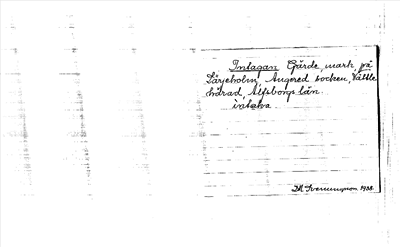 Intagan Gärde, mark på
Lärjeholm, Angered socken, Vättle
härad, Älfsborgs län.
intaka
D.A. Sverningson 1938.